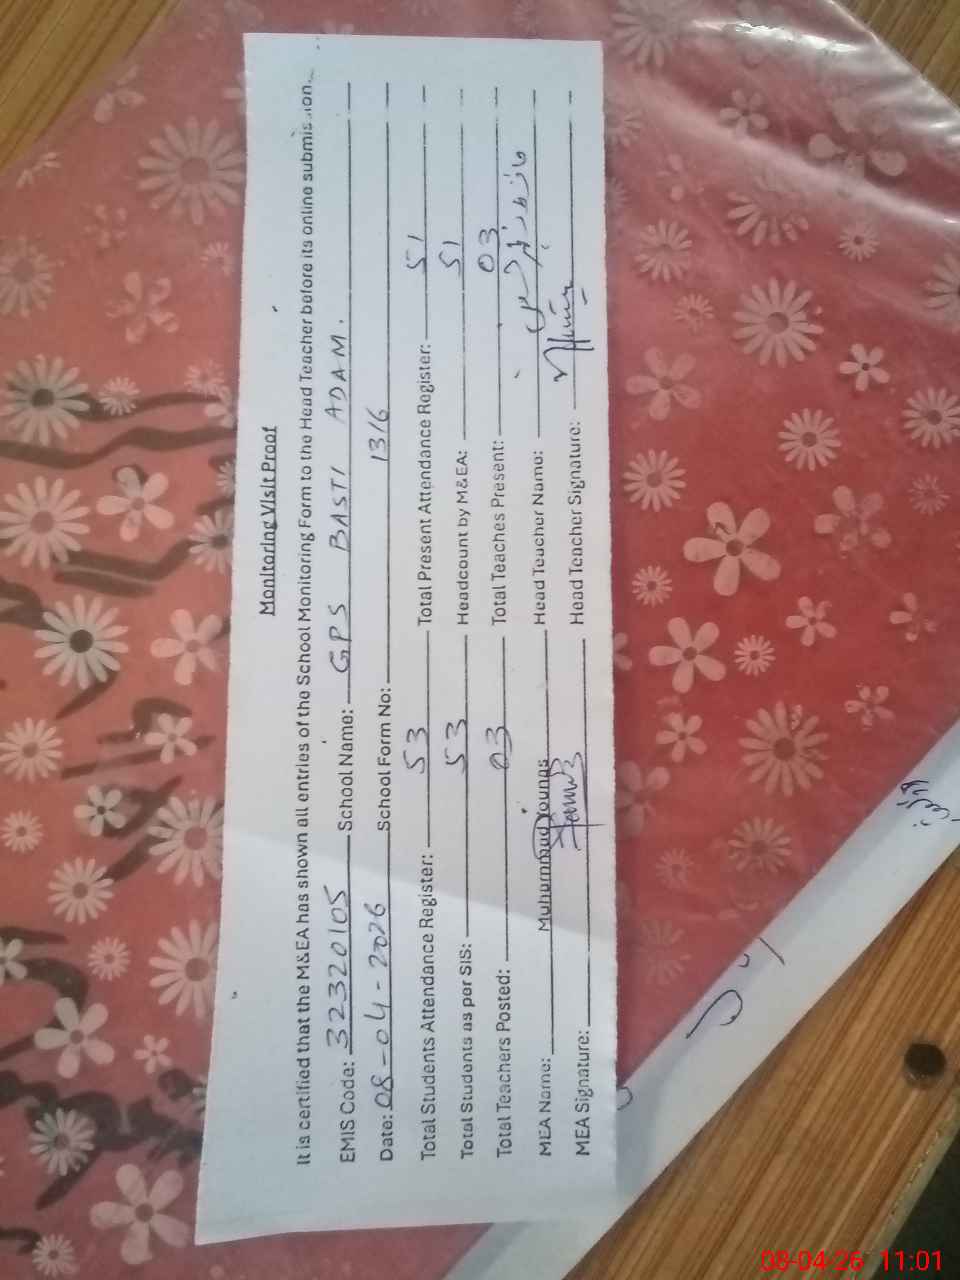 Monitoring Visit Proof
It is certified that the M&EA has shown all entries of the School Monitoring Form to the Head Teacher before its online submission.
EMIS Code: 32320105 School Name: GPS BASTI ADAM.
Date: 08-04-2026 School Form No: 1316
Total Students Attendance Register: 53 Total Present Attendance Register: 51
Total Students as per SIS: 53 Headcount by M&EA: 51
Total Teachers Posted: 03 Total Teaches Present: 03
MEA Name: Muhammad Younas Head Teacher Name:
MEA Signature: Head Teacher Signature:
08-04-26 11:01